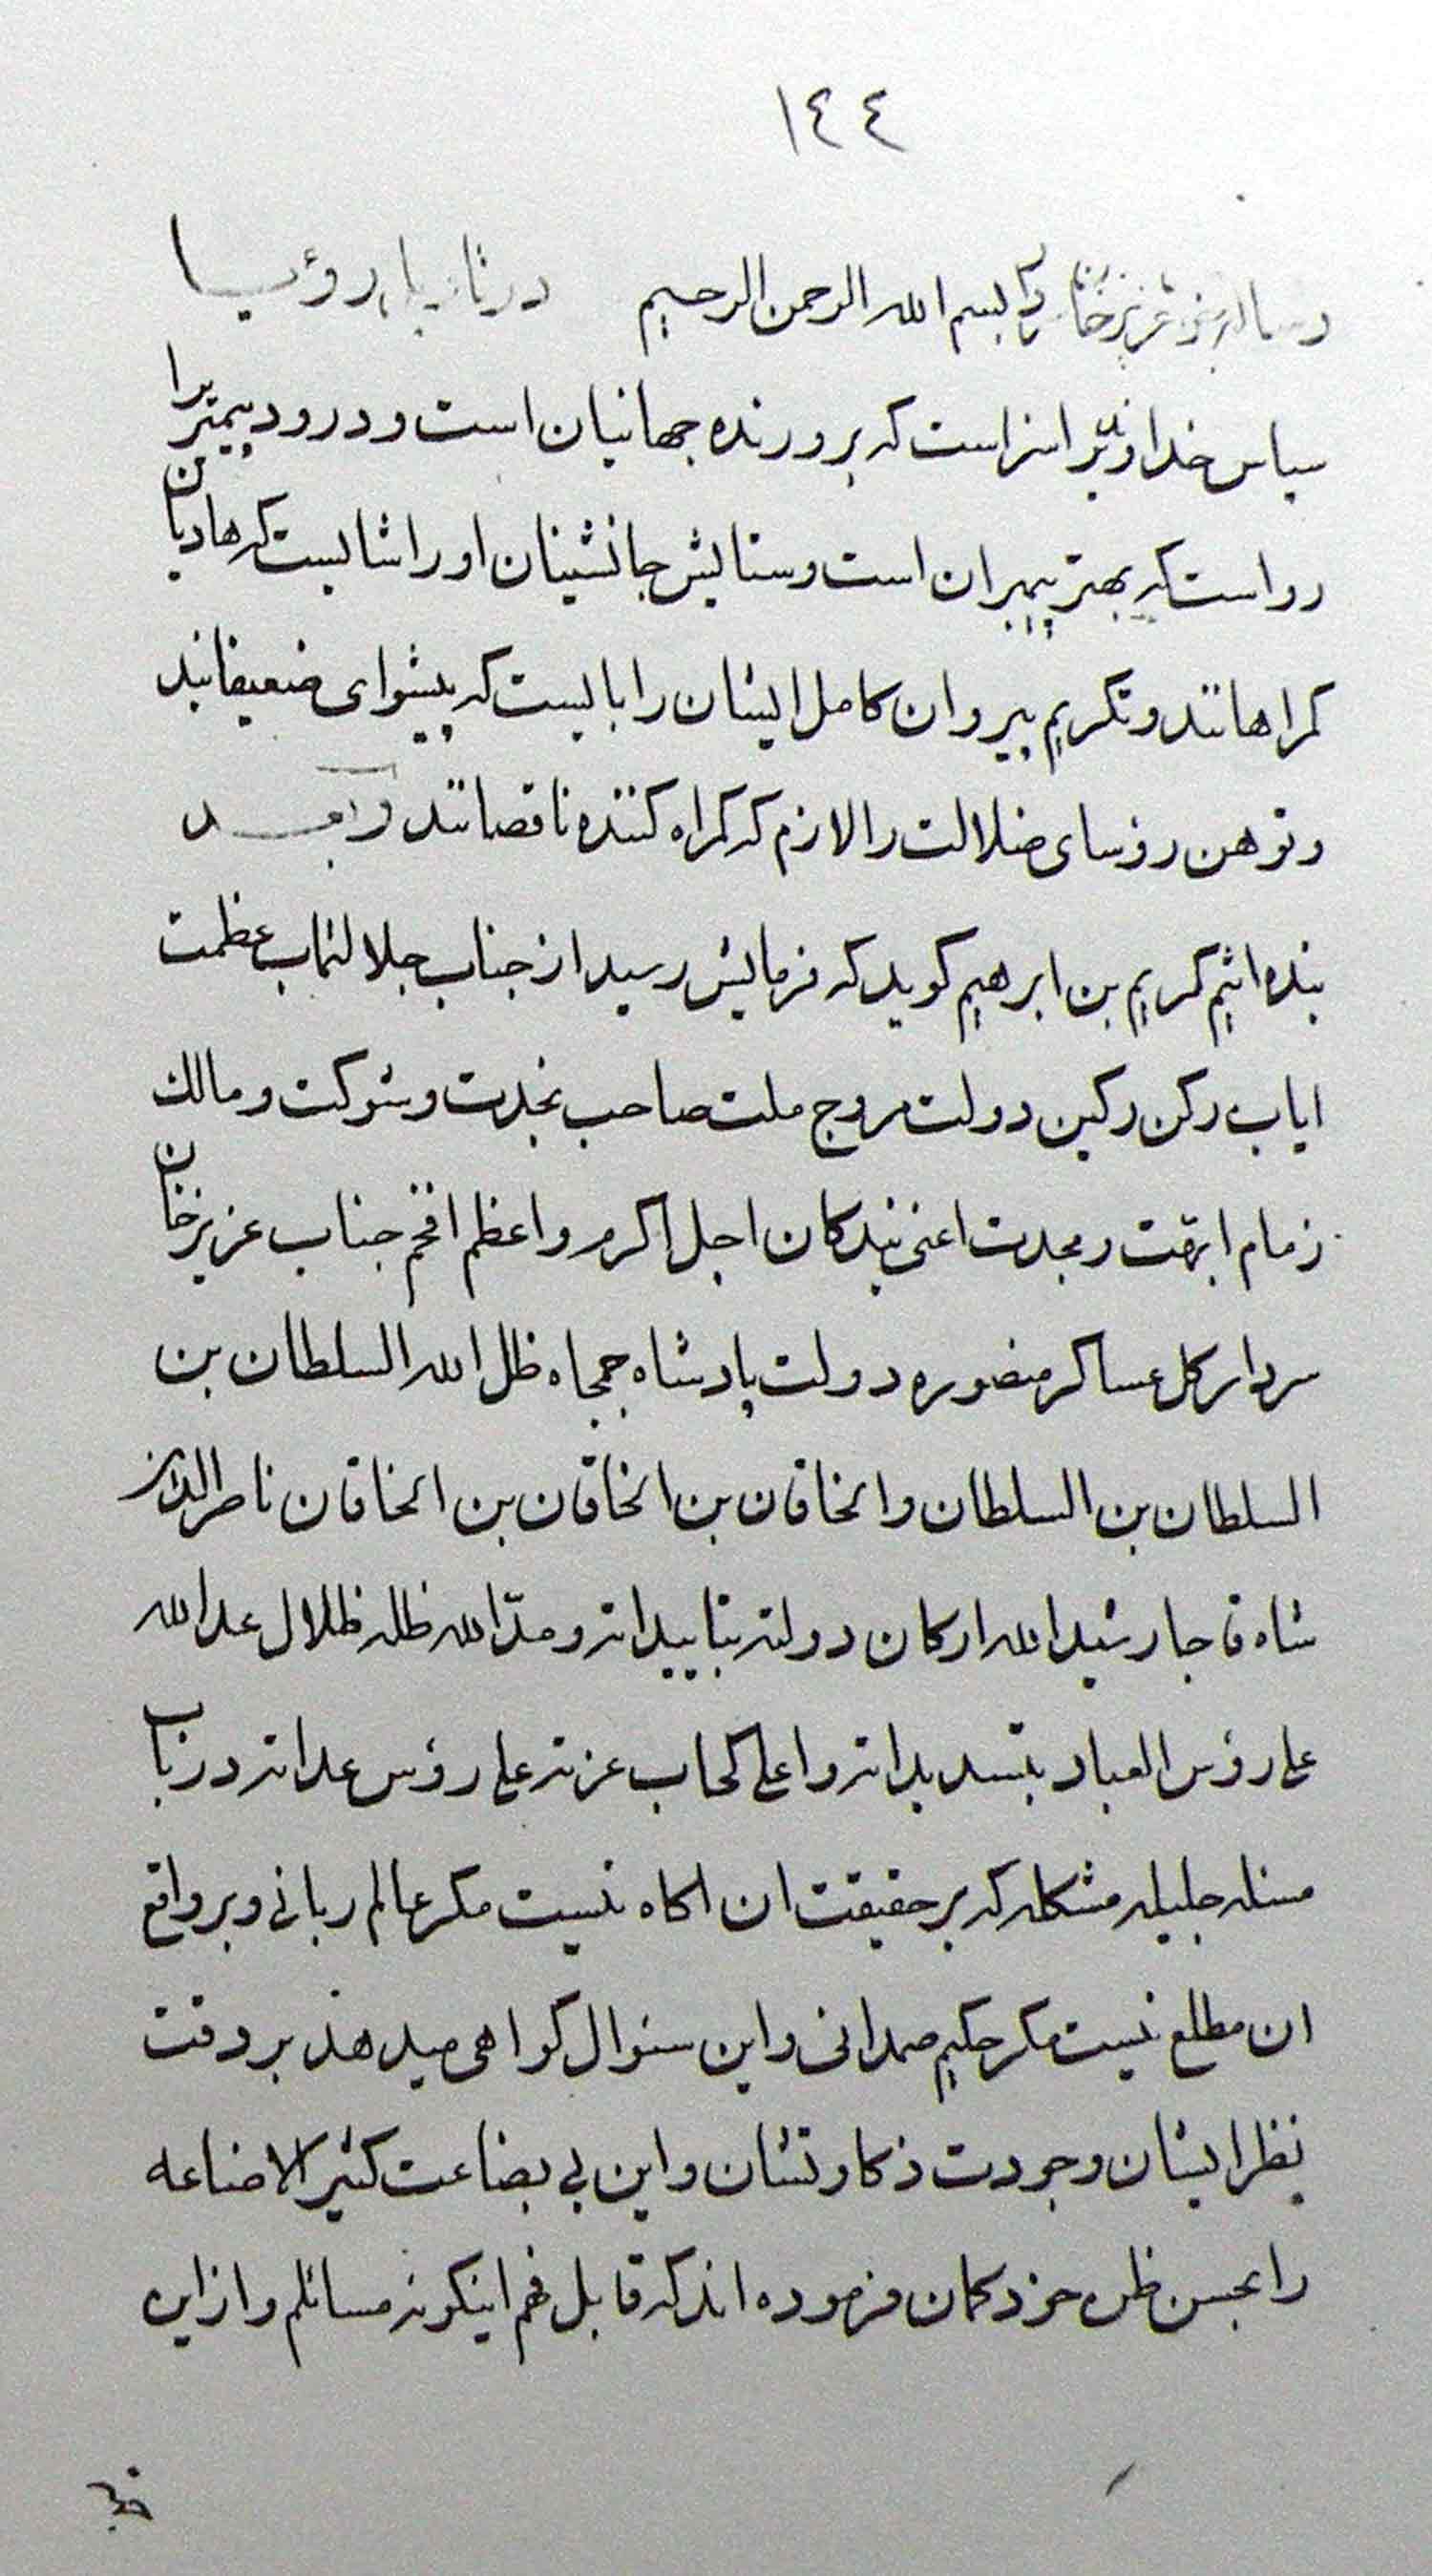 ١٤٤
رساله عزیز خان بسم الله الرحمن الرحیم در رؤیا
سپاس خداوندیرا سزاست که پرورنده جهانیان است و درود پیمبریرا
رواست که بهتر پیمبران است و ستایش جانشینان او را شایست که هادیان
کمراهانند و تکریم پیروان کامل ایشان را بایست که پیشوای ضعیفانند
و توهن رؤسای ضلالت را لازم که کمراه کننده ناقصانند و بعد
بنده اثیم کریم بن ابرهیم کوید که فرمایش رسید از جناب جلالتماب عظمت
ایاب رکن رکین دولت مروج ملت صاحب نجدت و شوکت و مالک
زمام ابهت و مجدت اعنی بندکان اجل اکرم و اعظم افخم جناب عزیز خان
سردار کل عساکر منصوره دولت پادشاه جمجاه ظل الله السلطان بن
السلطان بن السلطان و الخاقان بن الخاقان بن الخاقان ناصرالدین
شاه قاجار شید الله ارکان دولته بتاییداته و مدّ الله ظله ظلال عدالله
علی رؤس العباد بتسدیداته و اعلی کعاب عزته علی رؤس عداته در باب
مسئله جلیله مشکله که بر حقیقت ان اکاه نیست مکر عالم ربانی و بر واقع
ان مطلع نیست مکر حکیم صمدانی و این سئوال کواهی میدهد بر دقت
نظر ایشان و جودت ذکاوتشان و این بی بضاعت کثیر الاضاعه
را بحسن ظن خود کمان فرموده اند که قابل فهم اینکونه مسائلم و از این